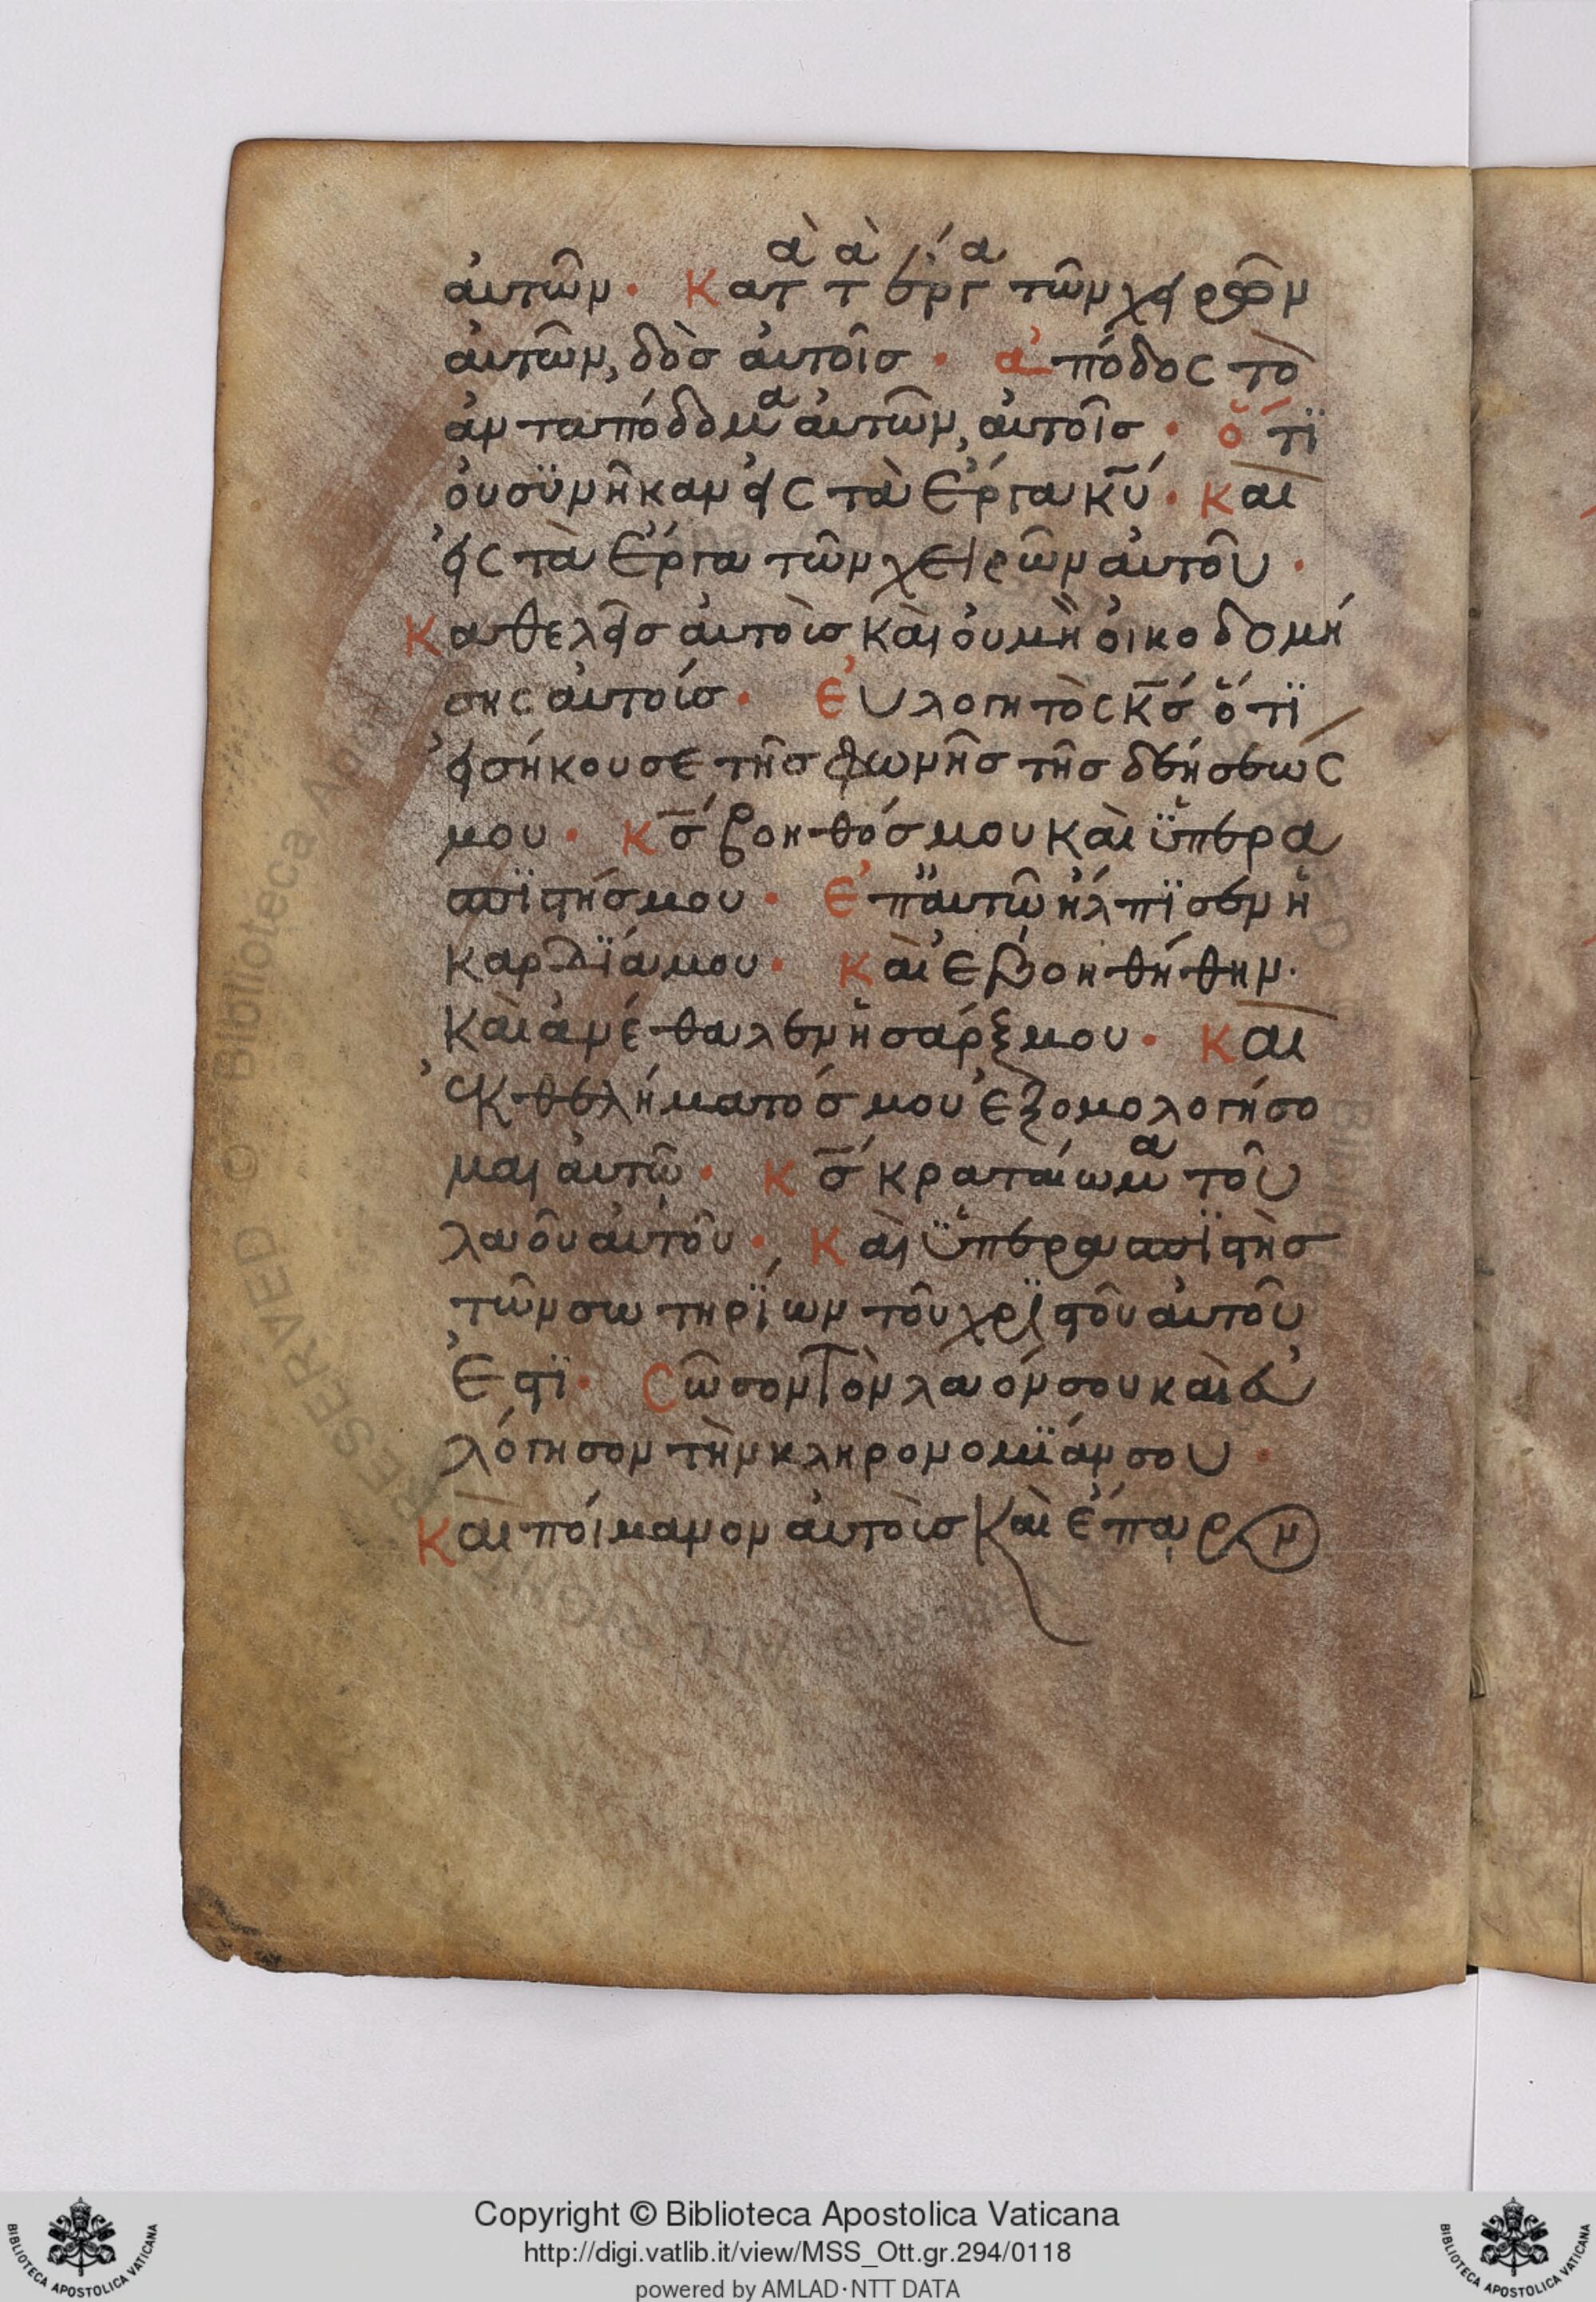 αὐτῶν· Κατὰ τὰ ἔργα τῶν χειρῶν
αὐτῶν, δὸσ αὐτοῖσ· ἀπόδος τὸ
ἀνταπόδομα αὐτῶν, αὐτοῖσ· ὅτϊ
οὐ σϋνῆκαν εἰς τὰ ἔργα κ̅υ̅· Και
εἰς τὰ ἔργα τῶν χειρῶν αὐτοῦ·
Καθελεῖσ αὐτοὶσ καὶ οὐ μὴ οἰκοδομή
σης αὐτοίσ· Εὐλογητὸς κ̅σ̅ ὅτϊ
εἰσήκουσε τῆσ φωνῆσ τῆσ δεήσεώς
μου· Κ̅σ̅ βοηθόσ μου καὶ ὑ̈περα
σπϊστήσ μου· Ἐπ αὐτῶ ἤλπϊσεν ἡ
καρδϊά μου· Καὶ ἐβοηθήθην·
Καὶ ἀνέθαλεν ἡ σάρξ μου· Και
ἐκ θελήματόσ μου ἐξομολογήσο
μαι αὐτῶ· Κ̅σ̅ κραταίωμα τοῦ
λαοῦ αὐτοῦ· Καὶ ὑ̈περασπϊστὴσ
τῶν σωτηρΐων τοῦ χρϊστοῦ αὐτοῦ
ἐστϊ· Cῶσον τὸν λαόν σου καὶ εὐ
λόγησον τὴν κληρονομϊάν σου·
Και ποίμανον αὐτοὶσ καὶ ἔπαρον
Copyright © Biblioteca Apostolica Vaticana
http://digi.vatlib.it/view/MSS_Ott.gr.294/0118
powered by AMLAD·NTT DATA